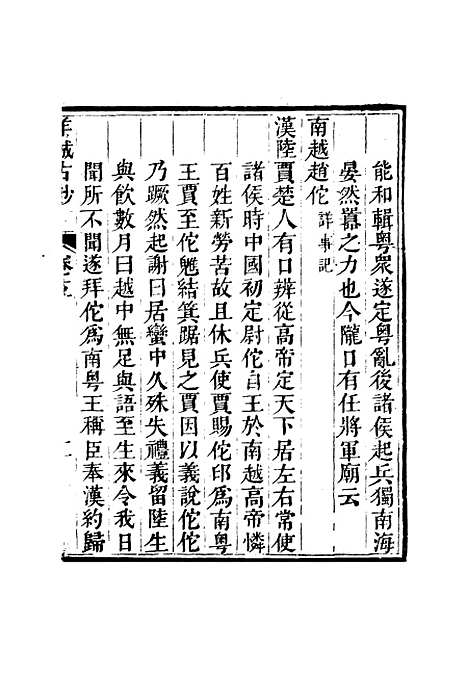 能和輯粤衆遂定粤亂後諸侯起兵獨南海
晏然囂之力也今隴口有任將軍廟云
南越趙佗詳事記
漢陸賈楚人有口辨從高帝定天下居左右常使
諸侯時中國初定尉佗自王於南越高帝憐
百姓新勞苦故且休兵使賈賜佗印爲南粤
王賈至佗魋結箕踞見之賈因以義說佗佗
乃蹶然起謝曰居蠻中久殊失禮義留陸生
與飲數月曰越中無足與語至生來令我日
聞所不聞遂拜佗爲南粤王稱臣奉漢約歸
羊城古鈔